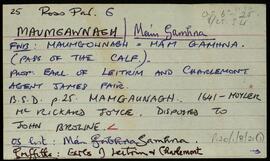 25 Ross Par. 6
MAUMGAWNAGH / Mám Gamhna
FNB: MAUMGOUNNAGH = MAM GAMHNA.
(PASS OF THE CALF).
PROP: EARL OF LEITRIM AND CHARLEMONT
AGENT JAMES FAIR.
B.S.D. p 25. MAMGAUNAGH. 1641 - MOYLER
Mc RICKARD JOYCE. DISPOSED TO
JOHN BROWNE
OS list: Mám Gamhna.
Griffith: Earls of Leitrim & Charlemont